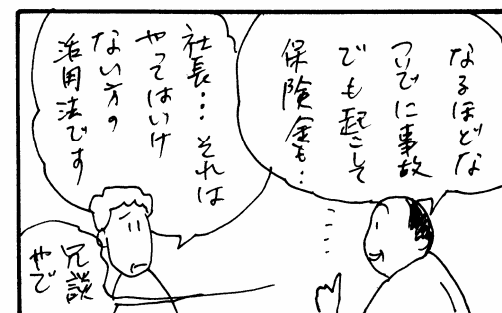 なるほどな
ついでに事故
でも起こして
保険金も…
社長…それは
やってはいけ
ない方の
活用法です
冗談
やで